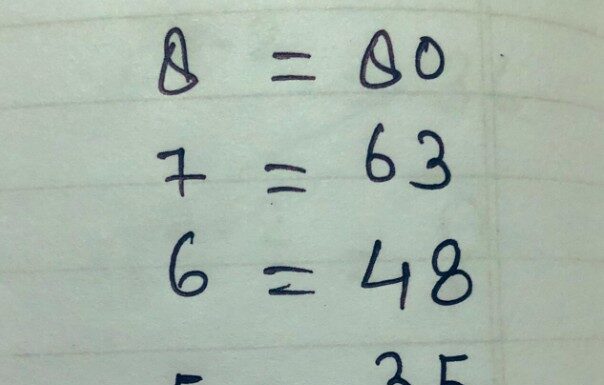 8 = 80
7 = 63
6 = 48
35